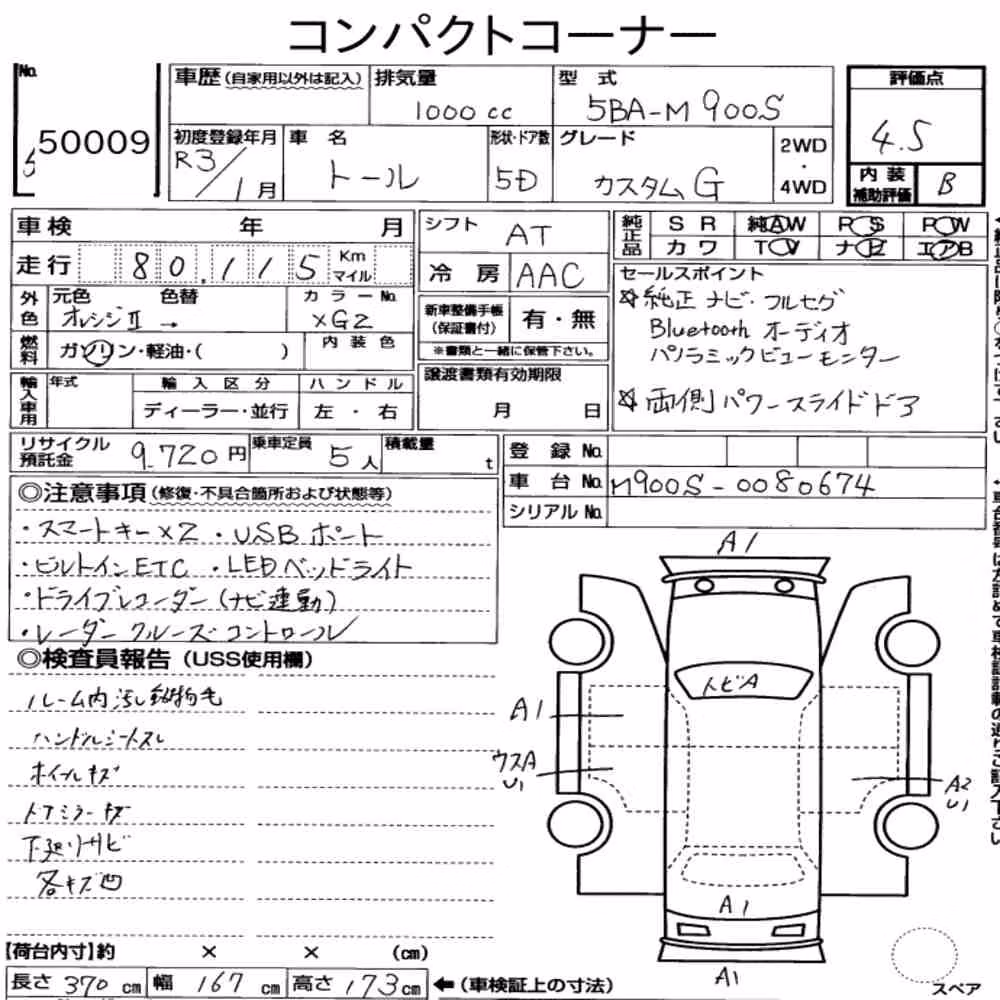 コンパクトコーナー
No. 50009
車歴（自家用以外は記入） 排気量 1000 cc 型式 5BA-M900S 評価点 4.5
初度登録年月 R3/1月 車名 トール 形状・ドア数 5D グレード カスタムG 2WD・4WD 内装補助評価 B
車検 年 月 シフト AT 純正品 SR 純AW PS PW
カワ TV ナビ エアB
走行 80,115 Km マイル 冷房 AAC
外色 元色 オレンジII 色替 → カラーNo. XG2
新車整備手帳（保証書付） 有・無
※書類と一緒に保管下さい。
燃料 ガソリン・軽油・（ ） 内装色
輸入車用 年式 輸入区分 ハンドル
ディーラー・並行 左・右
譲渡書類有効期限
月 日
セールスポイント
☆純正ナビ・フルセグ
Bluetooth オーディオ
パノラミックビューモニター
☆両側パワースライドドア
リサイクル預託金 9,720円 乗車定員 5人 積載量 t
登録No.
車台No. M900S-0080674
シリアルNo.
◎注意事項（修復・不具合箇所および状態等）
・スマートキー×2 ・USBポート
・ビルトインETC ・LEDヘッドライト
・ドライブレコーダー（ナビ連動）
・レーダークルーズコントロール
◎検査員報告（USS使用欄）
ルーム内汚し 動物毛
ハンドルシートスレ
ホイールキズ
ドアミラーキズ
下廻りサビ
各キズ凹
A1
トビA
A1
ウスA
U1
A2
U1
A1
A1
スペア
【荷台内寸】約 × × (cm)
長さ 370 cm 幅 167 cm 高さ 173 cm ←（車検証上の寸法）